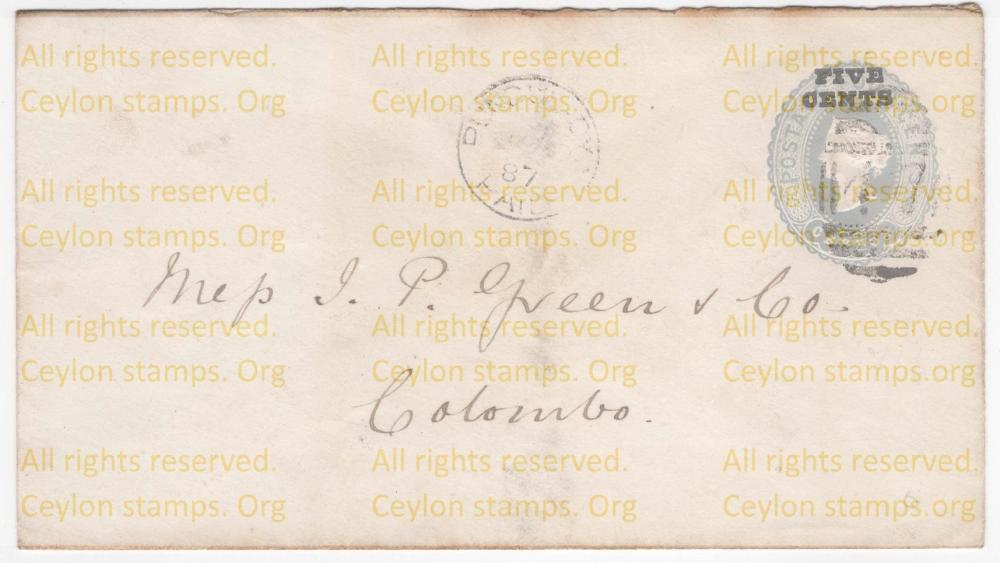 All rights reserved. All rights reserved. All rights reserved.
FIVE
CENTS
Ceylon stamps. Org Ceylon stamps. Org Ceylon stamps. Org
POSTA
87
All rights reserved. All rights reserved. All rights reserved.
Ceylon stamps. Org Ceylon stamps. Org Ceylon stamps. Org
J. P. Green & Co
All rights reserved. All rights reserved. All rights reserved.
Ceylon stamps. Org Ceylon stamps. Org Ceylon stamps. Org
Colombo.
All rights reserved. All rights reserved. All rights reserved.
Ceylon stamps. Org Ceylon stamps. Org Ceylon stamps. Org